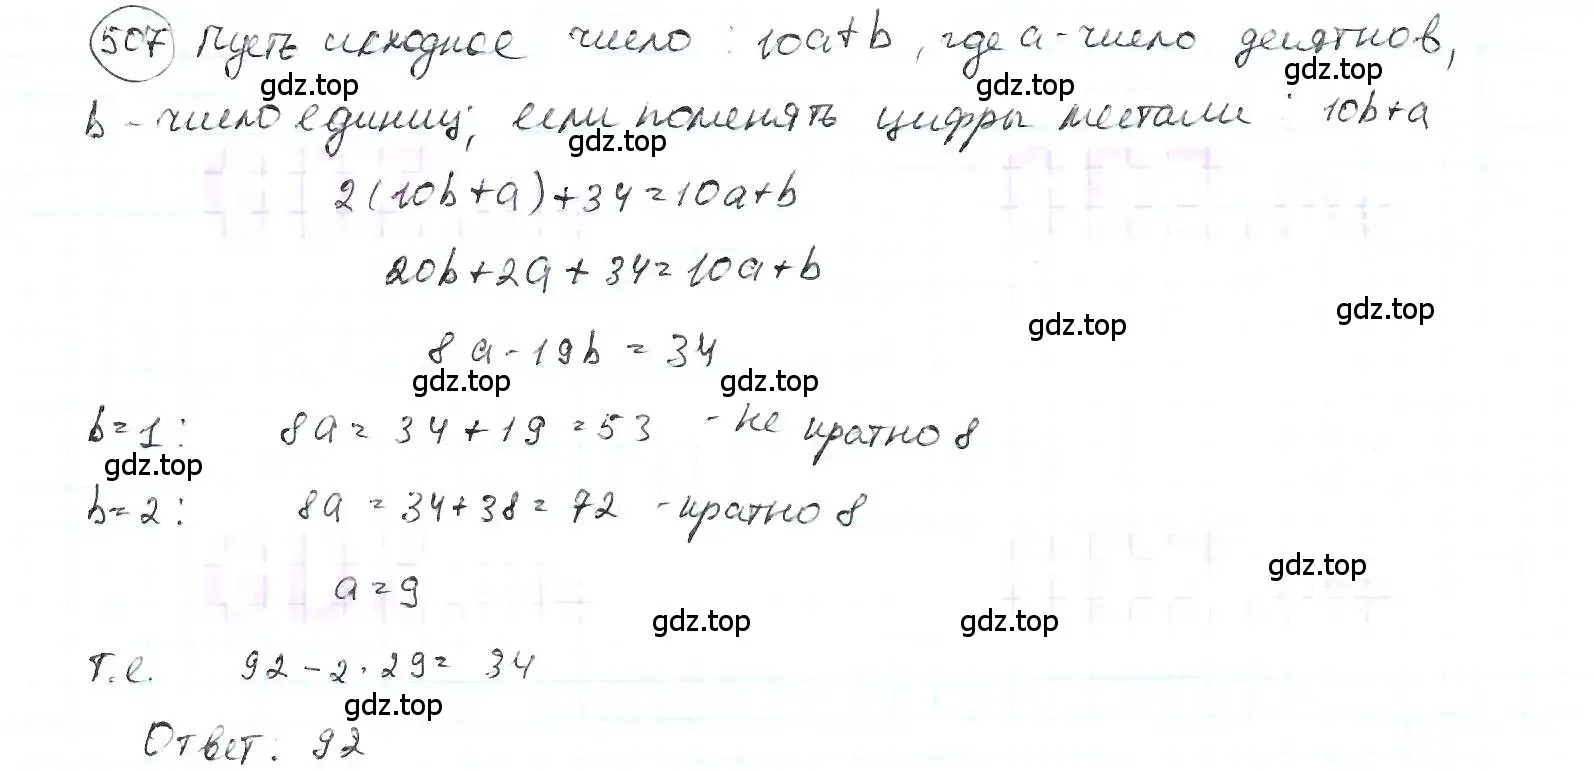 507 Пусть исходное число : 10a+b, где a - число десятков,
b - число единиц; если поменять цифры местами : 10b+a
2(10b+a)+34=10a+b
20b+2a+34=10a+b
8a-19b=34
b=1: 8a=34+19=53 - не кратно 8
b=2: 8a=34+38=72 - кратно 8
a=9
т.е. 92-2·29=34
Ответ: 92
gdz.top
gdz.top
gdz.top
gdz.top
gdz.top
gdz.top
gdz.top
gdz.top
gdz.top
gdz.top
gdz.top
gdz.top
gdz.top